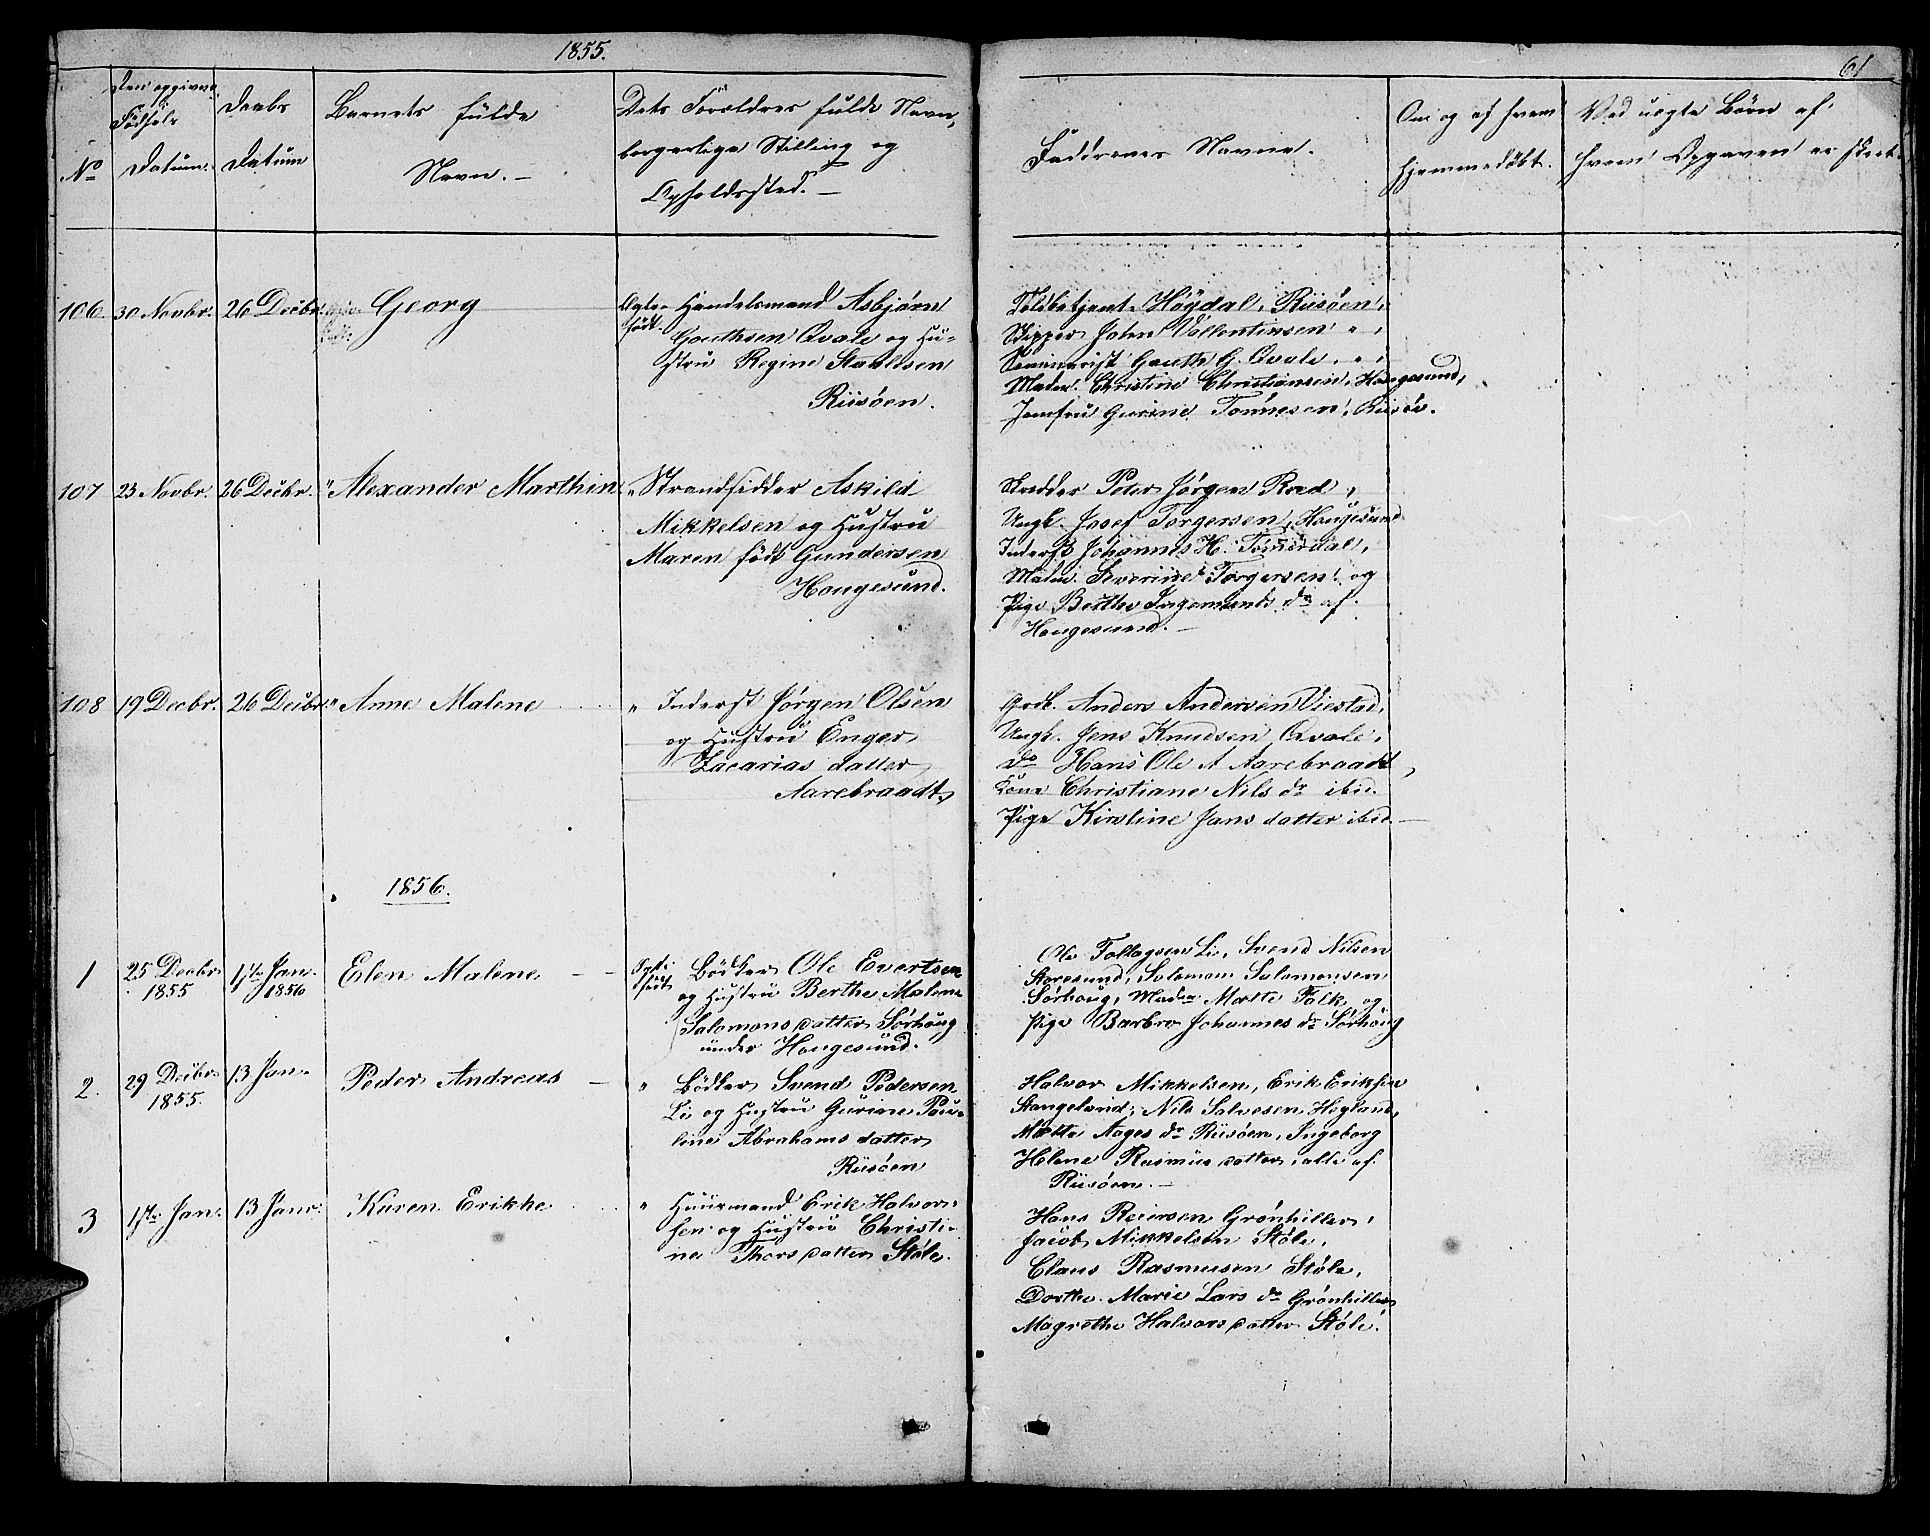 1855.
61
No
Den opgivne
Födsels
Datum.
Daabs
Datum
Barnets fulde
Navn. -
Dets Forældres fulde Navn,
borgerlige Stilling og
Opholdssted. -
Faddrenes Navne.
Om og af hvem
hjemmedöbt.
Ved uegte Börn af
hvem Opgaven er skeet
106
30 Novbr.
26 Decbr.
Georg
Ægte-
född.
Handelsmand Asbjörn
Gauthsen Qvale og Hu-
stru Regine Staalesen
Riisöen.
Toldbetjent Höydal, Riisöen,
Skipper John Vallentinsen " ,
Seminarist Gauth G. Qvale, " ,
Madm. Christine Christiansen, Hougesund,
Jomfru Gurine Tönnesen, Riisöe.
107
23 Novbr.
26 Decbr.
" Alexander Marthin
" Strandsidder Askild
Mikkelsen og Hustru
Maren född Gundersen
Hougesund.
Skredder Peter Jörgen Roed,
Ungk. Josef Torgersen, Hougesund
Inderst Johannes H.
Madm. Severine Torgersen, og
Pige Berthe Ingemunds dr af
Hougesund. -
108
19 Decbr.
26 Decbr.
" Anne Malene
" Inderst Jörgen Olsen
og Hustru Enger
Zacarias datter
Aarebraadt
Grdb. Anders Andersen Viestad,
Ungk. Jens Knudsen Qvale,
do Hans Ole A Aarebraadt,
Kone Christiane Nils dr ibid.
Pige Kirstine Jans datter ibid. -
1856.
1
25 Decbr.
1855
1ste Jan.
1856
Elen Malene
Bödker Ole Evertsen
og Hustru Berthe Malene
Salomons datter Sörhoug
under Hougesund.
Ole Li, Svend Nilsen
Storesund, Solomon Salomonsen
Sörhoug, Madm Mætte Falk, og
Pige Barbro Johannes dr Sörhoug
2.
29 Decbr.
1855.
13 Jan.
Peder Andreas -
" Bödker Svend Pedersen
Li og Hustru Gurine Pau-
line Abrahams datter
Riisöen
Halvor Mikkelsen, Erik Eriksen
Stangeland; Nils Salvesen Hegland,
Mætte Aages dr Riisöen, Ingeborg
Helene Rasmus datter, alle af
Riisöen. -
3
1ste Jan.
13 Janr.
Karen Erikke
" Huusmand Erik Halvor-
sen og Hustru Christi-
ne Thors datter Stöle.
Hans Reiersen Grönhiller,
Jacob Mikkelsen Stöle,
Claus Rasmusen Stöle,
Dorthe Marie Lars dr Grönhiller
Magrethe Halvors datter Stöle.